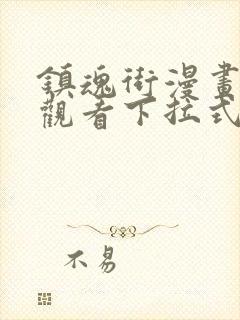 鎮魂街漫畫
觀看下拉式
不易